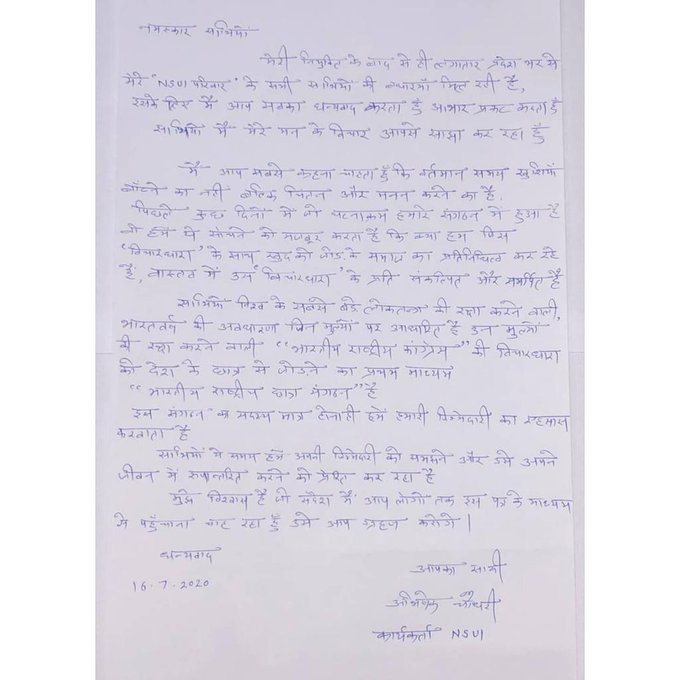 नमस्कार साथियों
मेरी नियुक्ति के बाद से ही लगातार प्रदेश भर से
मेरे 'NSUI परिवार' के सभी साथियों की बधाइयाँ मिल रही है,
इसके लिए मैं आप सबका धन्यवाद करता हूँ आभार प्रकट करता हूँ
साथियों मैं मेरे मन के विचार आपसे साझा कर रहा हूँ
मैं आप सबसे कहना चाहता हूँ कि वर्तमान समय खुशियाँ
बाँटने का नहीं बल्कि चिंतन और मनन करने का है.
पिछले कुछ दिनों में जो घटनाक्रम हमारे संगठन में हुआ है
वो हमें ये सोचने को मजबूर करता है कि क्या हम जिस
'विचारधारा' के साथ खुद को जोड़ के समाज का प्रतिनिधित्व कर रहे
हैं, वास्तव में उस 'विचारधारा' के प्रति संकल्पित और समर्पित है
साथियों विश्व के सबसे बड़े लोकतन्त्र की रक्षा करने वाली,
भारतवर्ष की अवधारणा जिन मुल्यों पर आधारित है उन मुल्यों
की रक्षा करने वाली "भारतीय राष्ट्रीय कांग्रेस" की विचारधारा
को देश के छात्र से जोडने का प्रथम माध्यम
"भारतीय राष्ट्रीय छात्र संगठन" है
इस संगठन का सदस्य मात्र होना ही हमें हमारी जिम्मेदारी का एहसास
करवाता है
साथियों ये समय हमें अपनी जिम्मेदारी को समझने और उसे अपने
जीवन में रूपान्तरित करने को प्रेरित कर रहा है
मुझे विश्वास है जो संदेश मैं आप लोगों तक इस पत्र के माध्यम
से पहुँचाना चाह रहा हूँ उसे आप ग्रहण करोगे।
धन्यवाद
16.7.2020
आपका साथी
अभिषेक चौधरी
कार्यकर्ता NSUI